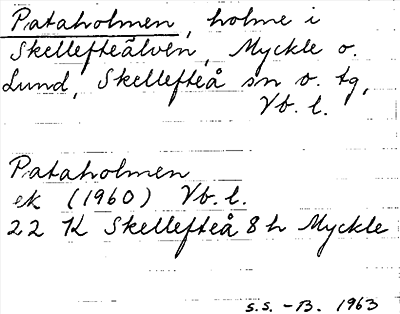 Pataholmen, holme i
Skellefteälven, Myckle o.
Lund, Skellefteå sn o. tg,
Vb. l.
Pataholmen
ek (1960) Vb. l.
22 K Skellefteå 8 h Myckle
s.s. -B. 1963